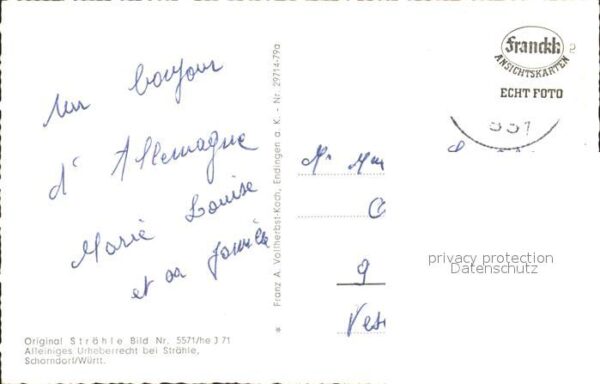 Un bonjour
d'Allemagne
Marie Louise
et sa famille
Original Strähle Bild Nr. 5571/he J 71
Alleiniges Urheberrecht bei Strähle,
Schorndorf/Württ.
* Franz A. Vollherbst-Koch, Endingen a. K. - Nr. 29714-79a
Franckh
ANSICHTSKARTEN
ECHT FOTO
Mr
C
9
privacy protection
Datenschutz